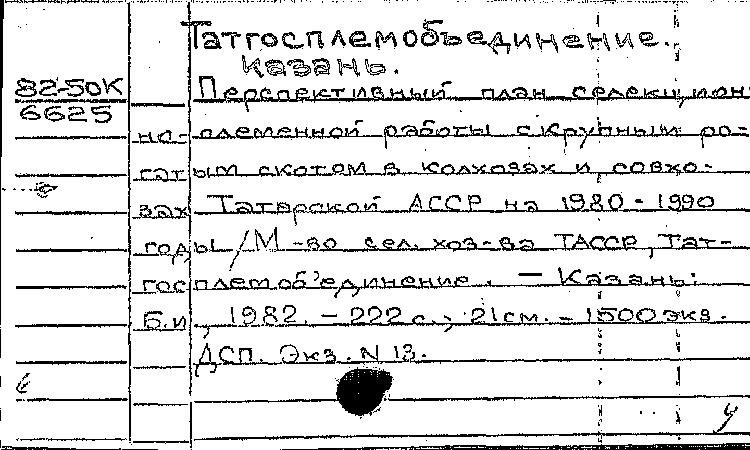 Татгосплемобъединение.
Казань.
82-50К
Перспективный план селекцион-
6625
но-племенной работы с крупным ро-
гатым скотом в колхозах и совхо-
зах Татарской АССР на 1980-1990
годы / М-во сел. хоз-ва ТАССР, Тат-
госплемоб'единение. — Казань:
Б.и., 1982. - 222 с.; 21 см. - 1500 экз.
ДСП. Экз. N 13.